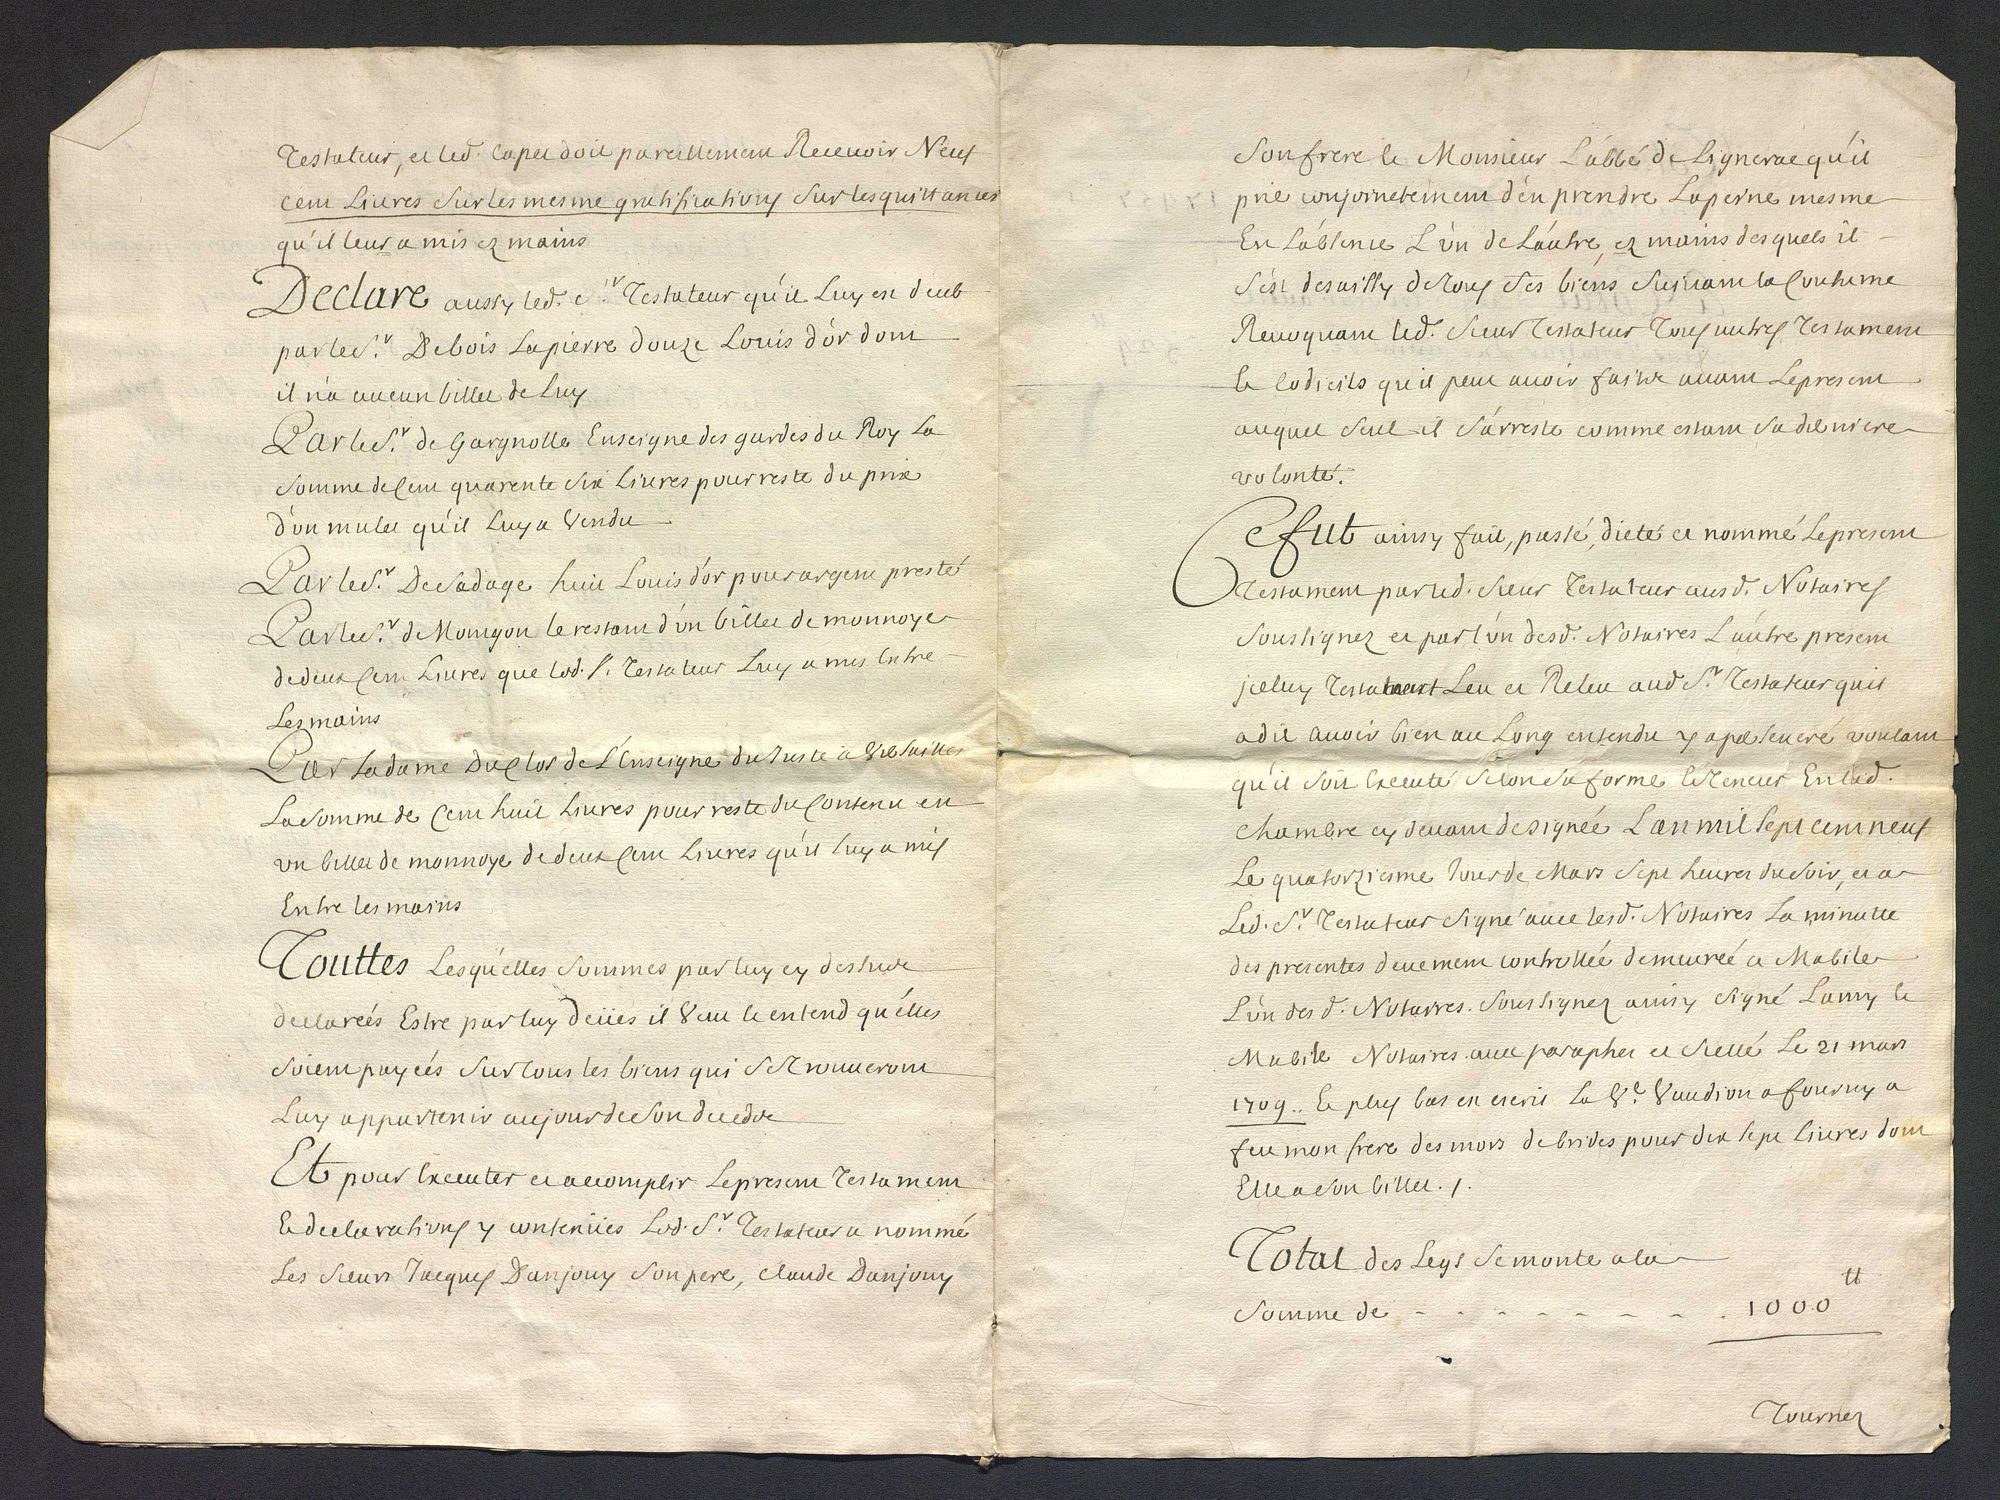 Testateur, et led. Capet doit pareillement Recevoir Neuf
cent Livres Sur les mesme gratifications Sur les quittances
qu'il leur a mis ez mains
Declare aussy led. Sr. Testateur qu'il Luy est deub
par le Sr. Debois Lapierre douze Louis d'or dont
il n'a aucun billet de Luy
Par le Sr. de Gargnolle Enseigne des gardes du Roy La
Somme de Cent quarente Six Livres pour reste du prix
d'un mulet qu'il Luy a Vendu
Par le Sr. De Sadage huit Louis d'or pour argent presté
Par le Sr. de Mongon le restant d'un billet de monnoye
de deux Cent Livres que led. Sr. Testateur Luy a mis Entre
Les mains
Par La dame Du Clos de L'Enseigne du Juste a Versailles
La Somme de Cent huit Livres pour reste du Contenu en
un billet de monnoye de deux Cent Livres qu'il luy a mis
Entre les mains
Touttes Lesqu'elles Sommes par luy cy dessus
declareés Estre par luy deües il Veut et entend qu'elles
Soient payeés Sur tous les biens qui Se trouveront
Luy appartenir au jour de Son decedre
Et pour Executer et accomplir Le present Testament
Et declarations y contenües Led. Sr. Testateur a nommé
Les Sieurs Jacques Danjouy Son pere, Claude Danjouy
Son frere et Monsieur L'abbé de Lignerac qu'il
prie conjointement d'en prendre La peine mesme
En L'absence L'un de L'autre, ez mains desquels il
S'est desaisy de tous Ses biens Suivant la Coutume
Revoquant led. Sieur Testateur Tous autres Testament
et Codicils qu'il peut avoir faitre avant Le present
auquel Seul il S'arreste comme estant Sa derniere
volonté.
Ce fut ainsy fait, passé, dicté et nommé Le present
Testament par led. Sieur Testateur ausd. Notaires
Soussignez et par l'un desd. Notaires L'autre present
jceluy Testament Leu et Releu aud. Sr. Testateur qu'il
a dit avoir bien au Long entendu y a perseveré voulant
qu'il Soit Executé Selon Sa forme et Teneur En lad.
Chambre cy devant designée L'an mil Sept cent neuf
Le quatorziesme Jour de Mars Sept heures du Soir, et a
Led. Sr. Testateur Signé avec lesd. Notaires La minutte
des presentes deuement controllée demeurée a Mabile
L'un des d. Notaires Soussignez ainsy Signé Lamy et
Mabile Notaires avec paraphes et Scellé Le 21 mars
1709.. Et plus bas est escrit La Ve. Vaudion a fourny a
feu mon frere des mors de brides pour dix Sept Livres dont
Elle a Son billet. /.
Total des Legs Se monte a la
Somme de - - - - - - - - . 1000 tt
Tournez